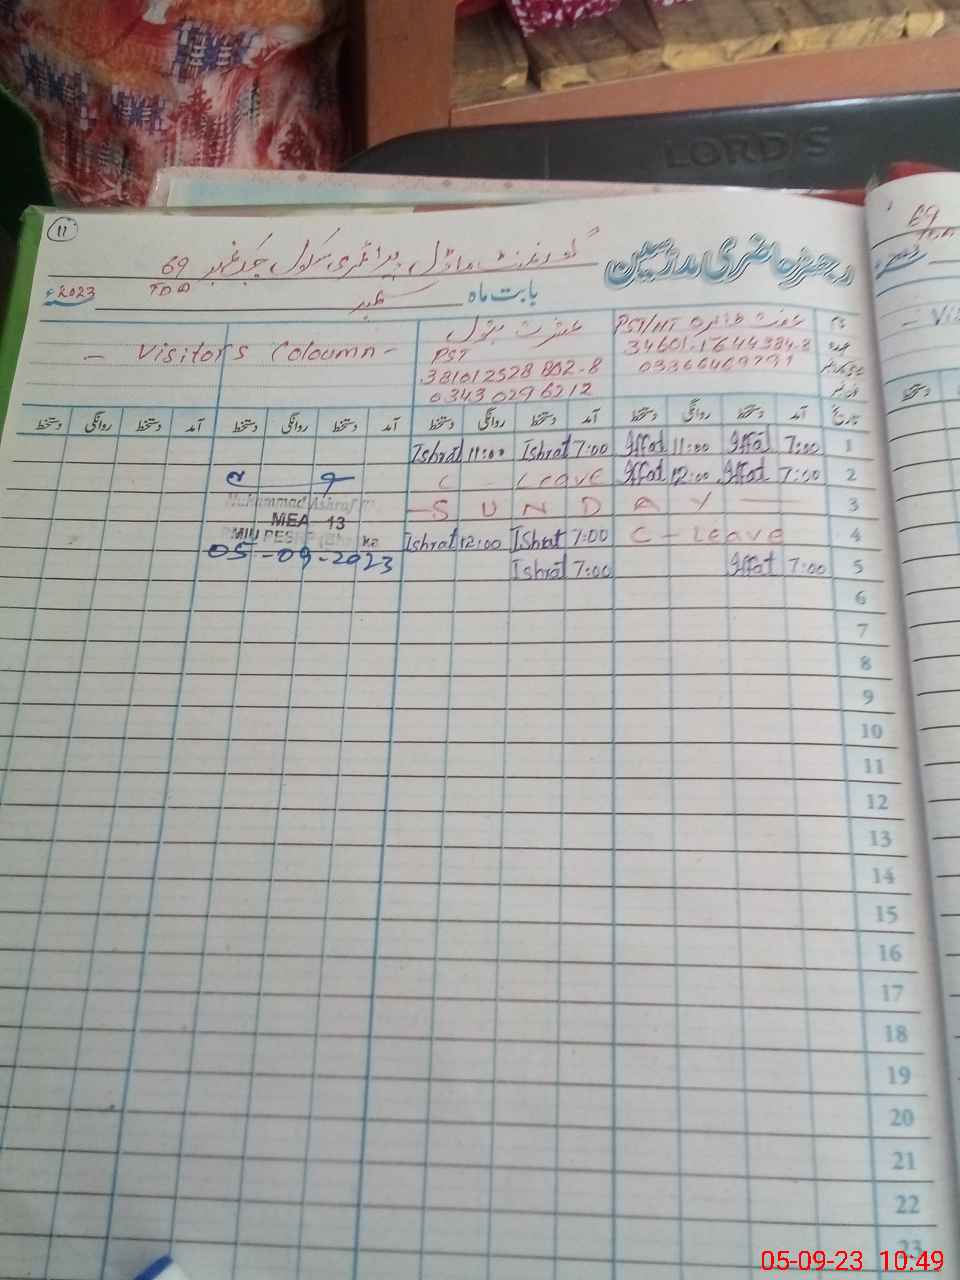 LORD'S
11
رجسٹر حاضری مدرسین
گورنمنٹ ماڈل پرائمری سکول چک نمبر 69 TDA
بابت ماہ ستمبر 2023ء
نام عفت طاہرہ PST/HT عشرت بتول PST
- Visitors Coloumn -
34601-1644384-8
381012528 802-8
03366469791
0343 0296212
تاریخ آمد دستخط روانگی دستخط آمد دستخط روانگی دستخط آمد دستخط روانگی دستخط آمد دستخط روانگی دستخط
1 7:00 Iffat 11:00 Iffat 7:00 Ishrat 11:00 Ishrat
2 7:00 Iffat 12:00 Iffat C Leave
3 - S U N D A Y -
4 C - Leave 7:00 Ishrat 12:00 Ishrat
5 7:00 Iffat 7:00 Ishrat
Muhammad Ashraf
MEA 13
05-09-2023
6
7
8
9
10
11
12
13
14
15
16
17
18
19
20
21
22
23
69
05-09-23 10:49